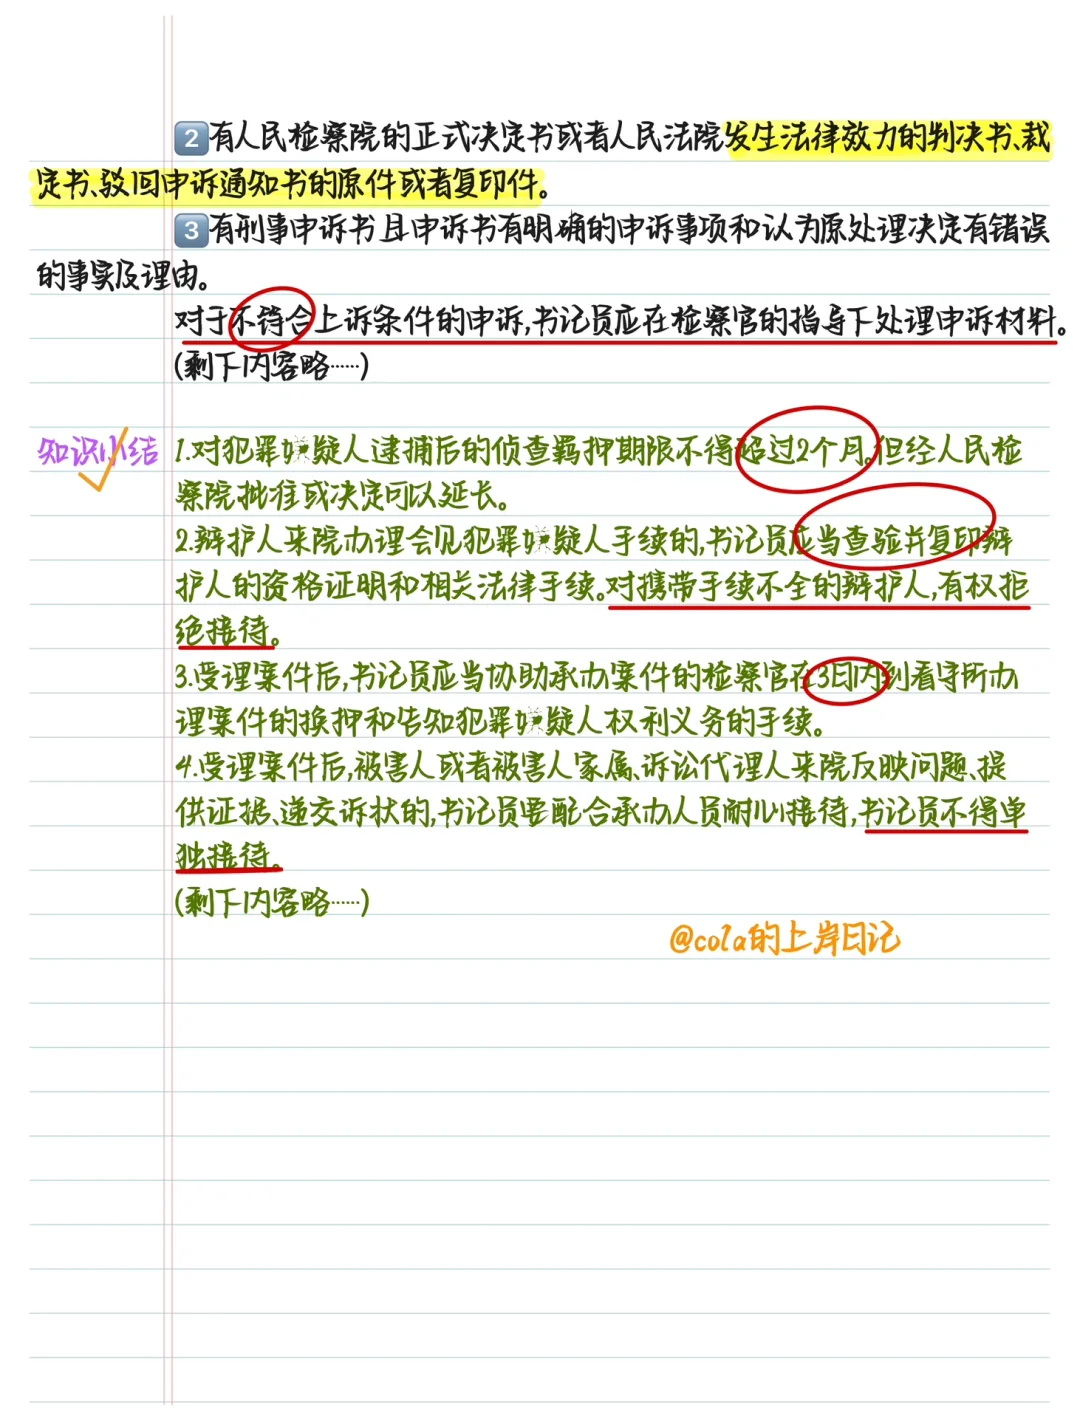 2 有人民检察院的正式决定书或者人民法院发生法律效力的判决书、裁
定书、驳回申诉通知书的原件或者复印件。
3 有刑事申诉书且申诉书有明确的申诉事项和认为原处理决定有错误
的事实及理由。
对于不符合上诉条件的申诉,书记员应在检察官的指导下处理申诉材料。
(剩下内容略……)
知识小结
1.对犯罪嫌疑人逮捕后的侦查羁押期限不得超过2个月。但经人民检
察院批准或决定可以延长。
2.辩护人来院办理会见犯罪嫌疑人手续的,书记员应当查验并复印辩
护人的资格证明和相关法律手续。对携带手续不全的辩护人,有权拒
绝接待。
3.受理案件后,书记员应当协助承办案件的检察官在3日内到看守所办
理案件的换押和告知犯罪嫌疑人权利义务的手续。
4.受理案件后,被害人或者被害人家属、诉讼代理人来院反映问题、提
供证据、递交诉状的,书记员要配合承办人员耐心接待,书记员不得单
独接待。
(剩下内容略……)
@cola的上岸日记